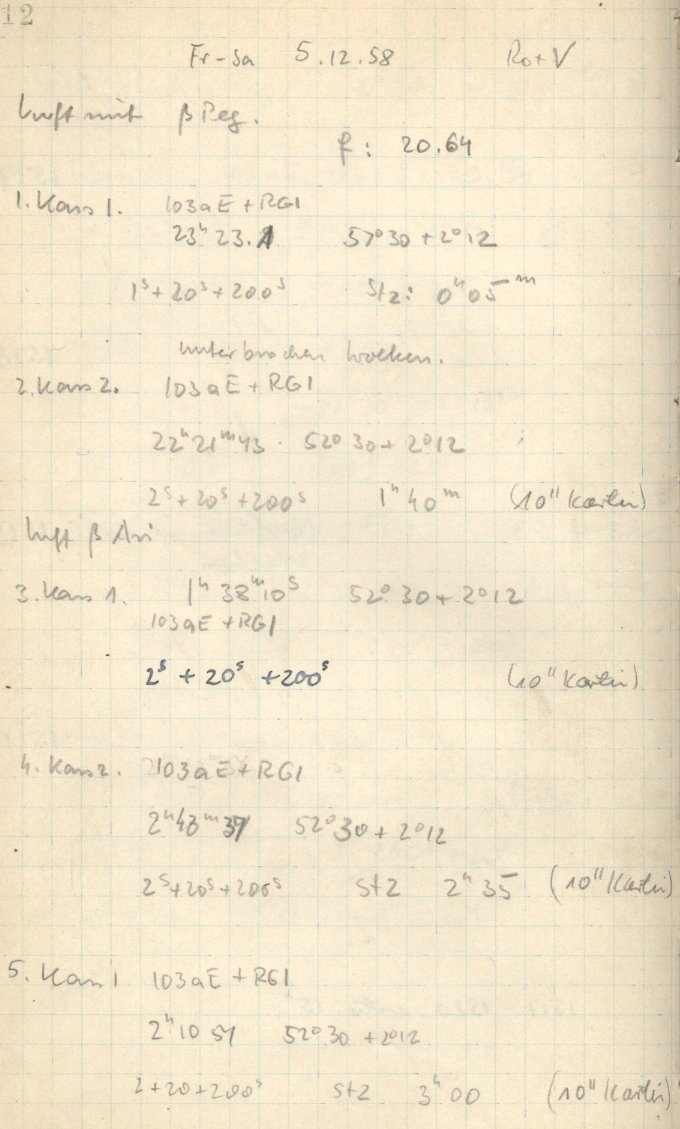 12
Fr-Sa 5.12.58 Ro+V
Luft mit β Peg.
f: 20.64
1. Kass 1. 103aE + RG1
23ʰ 23.1 57°30 + 2°12
1ˢ + 20ˢ + 200ˢ StZ: 0ʰ05ᵐ
unterbrochen Wolken.
2. Kass 2. 103aE + RG1
22ʰ21ᵐ43 52°30 + 2°12
2ˢ + 20ˢ + 200ˢ 1ʰ40ᵐ (10"
β Ari
3. Kass 1. 1ʰ 38ᵐ10ˢ 52°30 + 2°12
103aE + RG1
2ˢ + 20ˢ + 200ˢ (10"
4. Kass 2. 103aE + RG1
2ʰ43ᵐ 37 52°30 + 2°12
2ˢ + 20ˢ + 200ˢ StZ 2ʰ35 (10"
5. Kass 1 103aE + RG1
2ʰ10 51 52°30 + 2°12
2+20+200ˢ StZ 3ʰ00 (10"